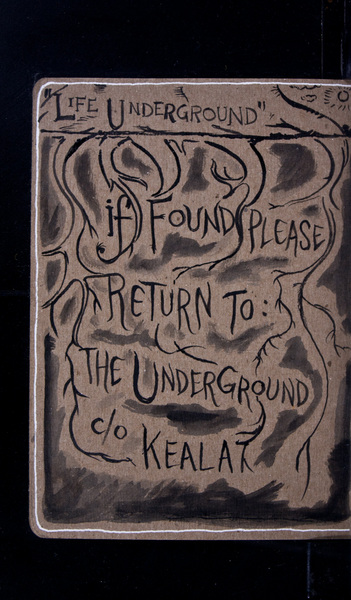 "LIFE UNDERGROUND"
if FOUND PLEASE
RETURN TO:
THE UNDERGROUND
c/o KEALA